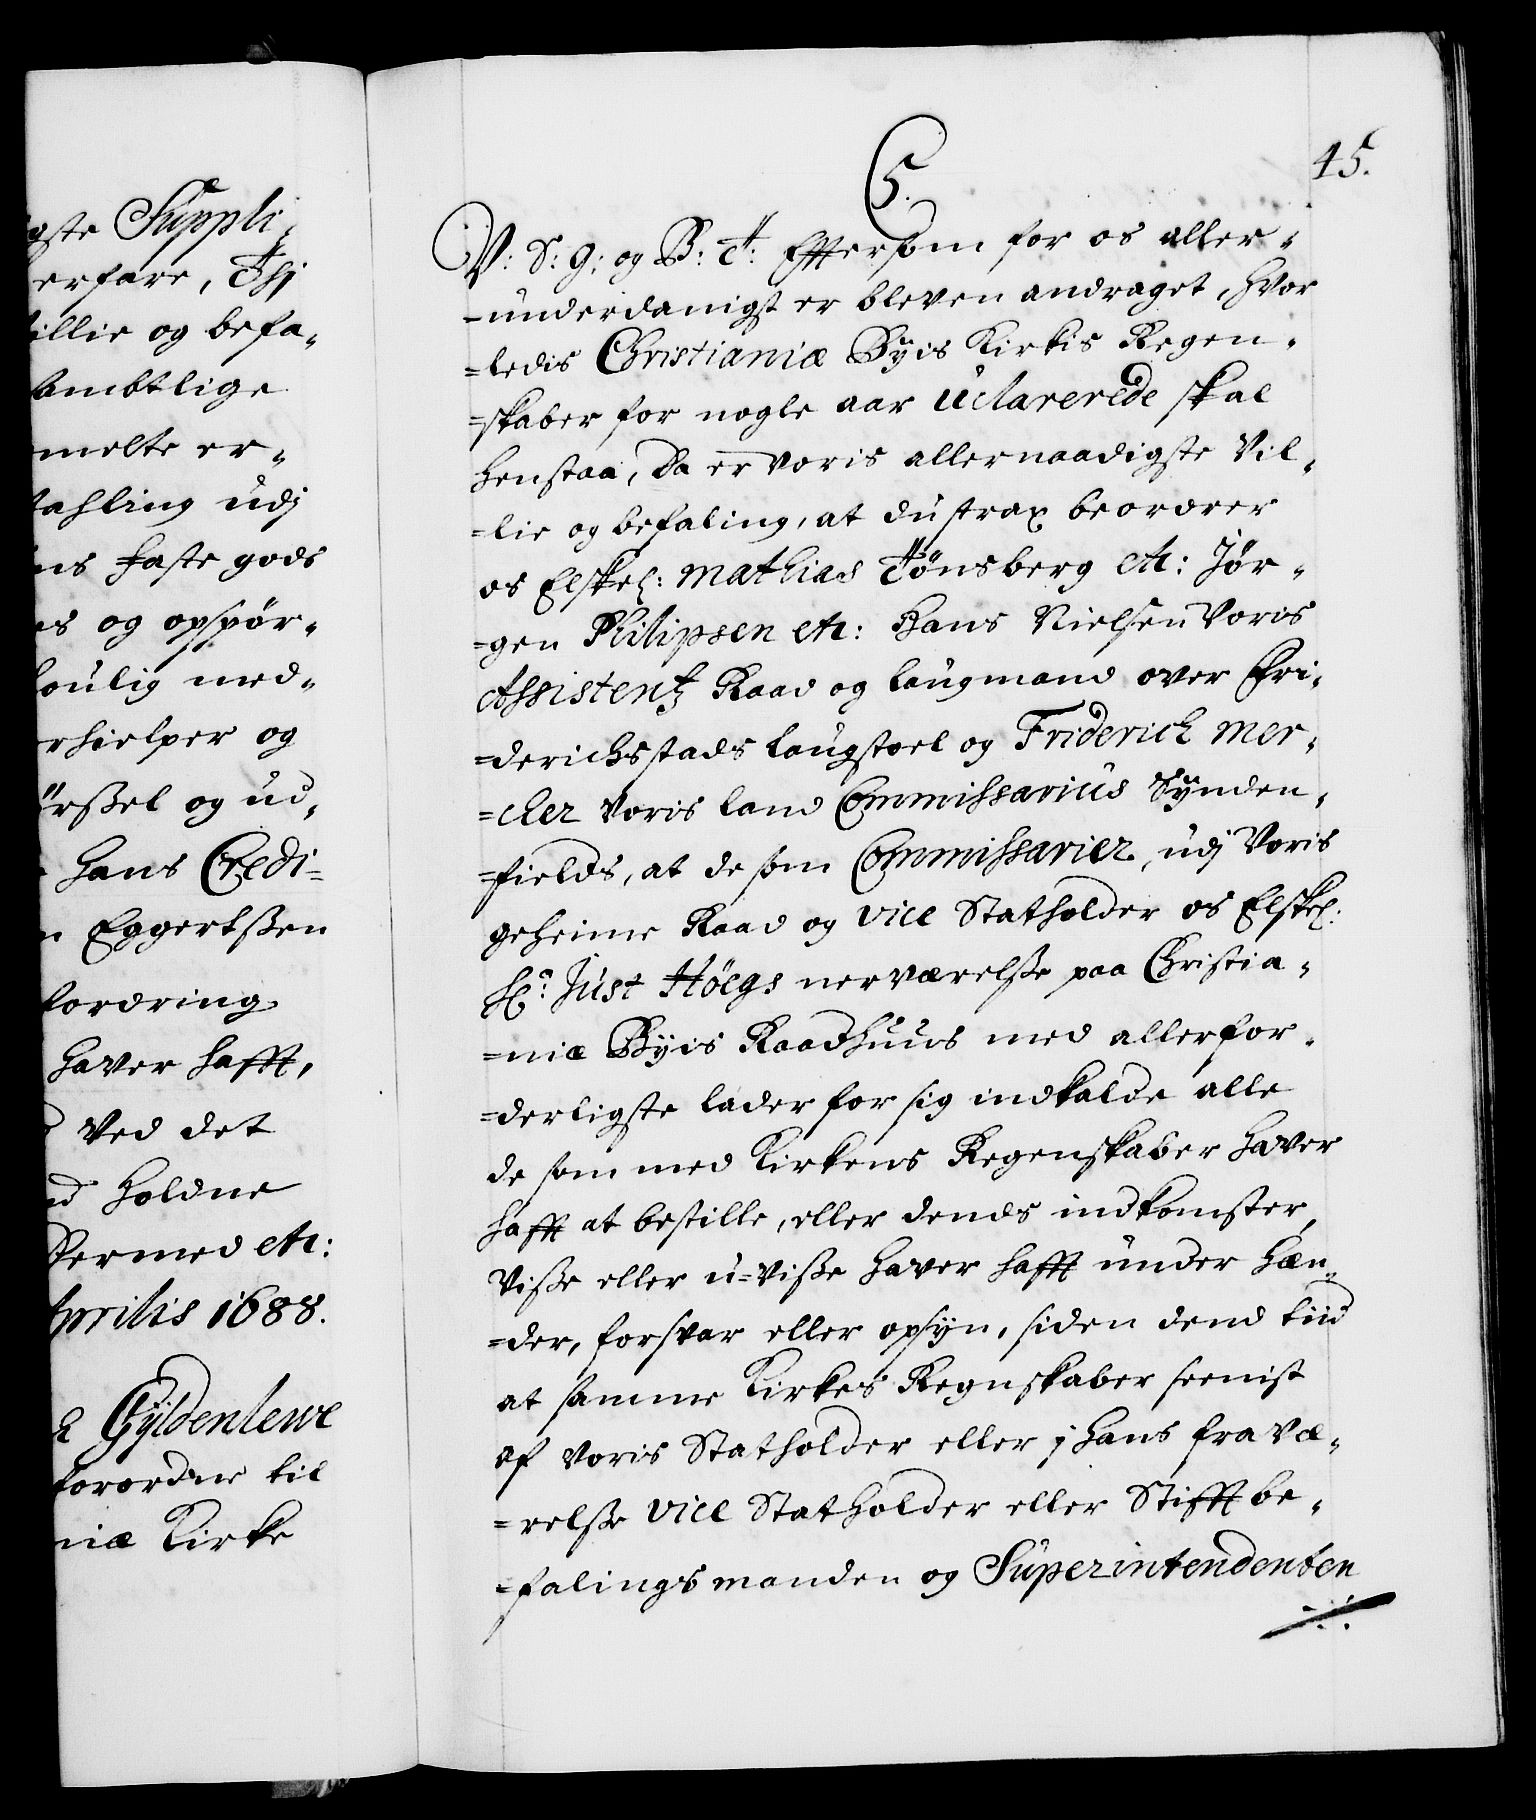 gste Suppli¸
erfare, Thj
illie og befa„
bmbtlige
melte er„
tahling udj
ns faste gods
es og opspör„
oulig med„
rhielper og
örßel og ud„
hans Credi=
n Eggertßen
fordring
haver hafft,
Ved det
d holdne
Dermed etc:
Aprilis 1688.
Gÿldenlewe
forordne til
niæ Kirke
45.
C5.
V: S: G: og B: T: Efftersom for os aller„
-underdanigst er bleven andraget, hvor
=ledis Christianiæ Bÿis Kirkis Regen„
=skaber for nogle aar Uclarerede skal
henstaa, Da er voris allernaadigste Vil„
=lie og befaling, at du strax beordrer
os Elskel: Mathias Tönsberg etc: Jör„
=gen Philipsen etc: Hans Nielsen Voris
Assistentz Raad og laugmand over Fri„
=derichsstads laugstoel og Friderich Mer„
=cker Voris land Commissarius Sÿnden„
=fields, at de som Commissarier, udj Voris
geheime Raad og Vice Statholder os Elskel:
Hr: Just Höegs nerværelße paa Christia„
=niæ Bÿis Raadhuus med allerfor„
=derligste lader for sig indkalde alle
de som med Kirkens Regenskaber haver
hafft at bestille, eller dends indkomster,
Viße eller u=viße haver hafft under hæn„
=der, forsvar eller opsÿn, siden dend tiid
at samme Kirkes Regnskaber seenist
af voris Statholder eller j hans fravæ„
=relße Vice Statholder eller Stifft be„
=falingsmanden og Superintendenten